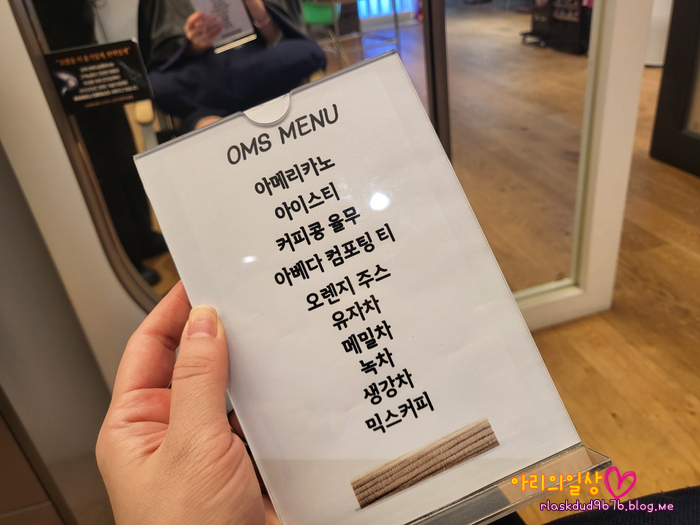 OMS MENU
아메리카노
아이스티
커피콩 율무
아베다 컴포팅 티
오렌지 주스
유자차
메밀차
녹차
생강차
믹스커피
아리의일상
rlaskdud9b7b.blog.me